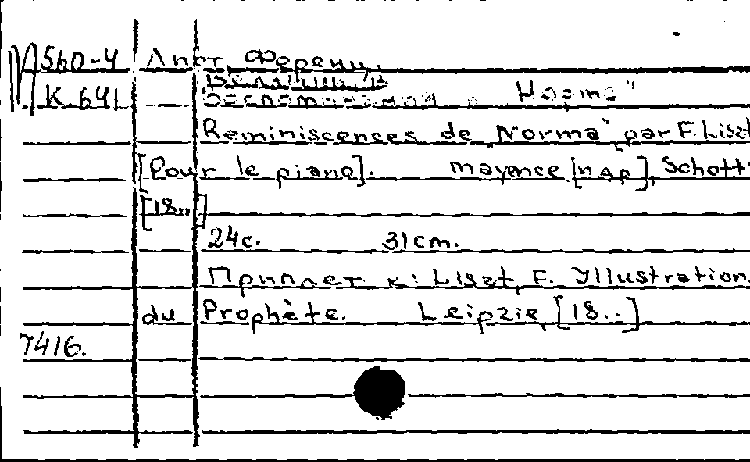 А560-4 Лист, Ференц.
К 641
"Норма"
Reminiscences de "Norma", par F. Liszt
[Pour le piano]. Mayence [и др], Schott
[18..]
24с. 31cm.
Приплет к: Liszt, F. Illustration
du Prophète. Leipzig, [18..]
7416.